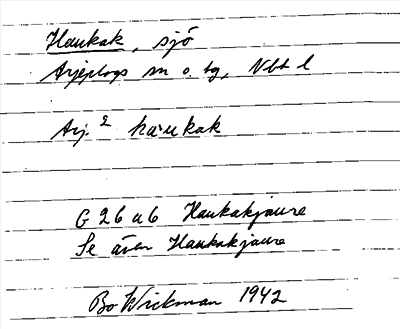 Haukak, sjö
Arjeplogs sn o. tg, Nbt l
Arj. 2 ha·ukak
G 26 a6 Haukakjaure
Se även Haukakjaure
Bo Wickman 1942